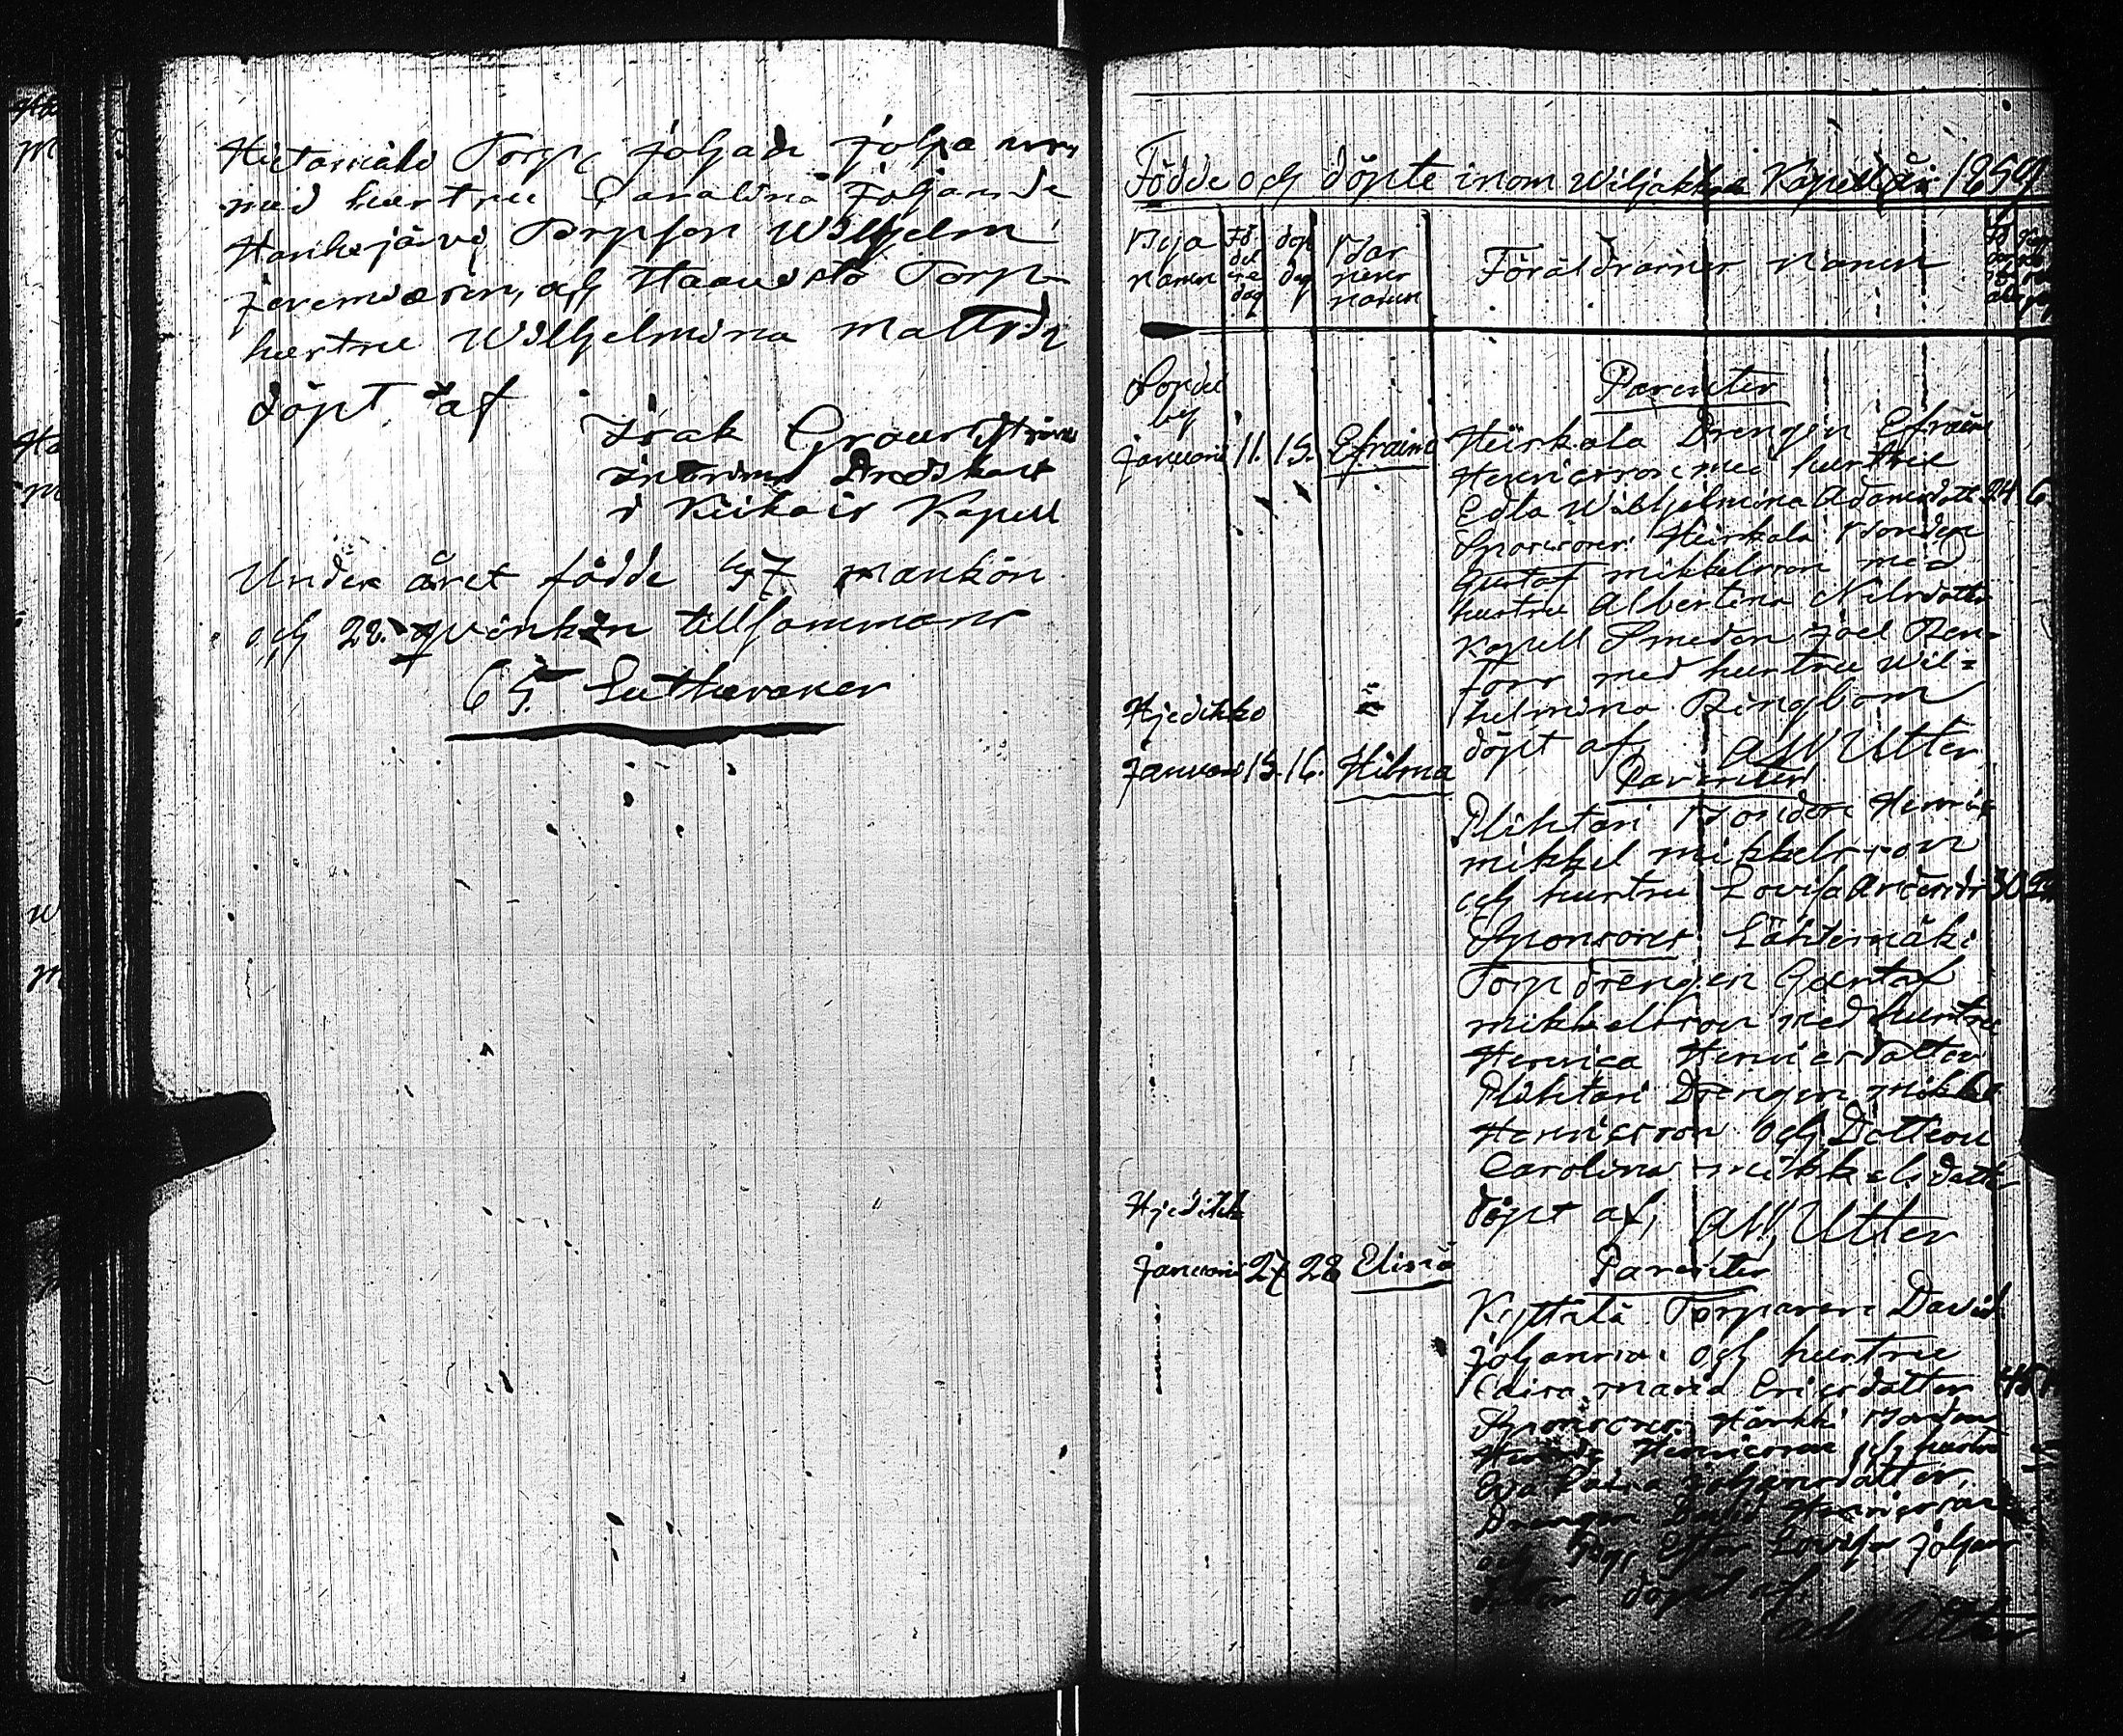 Hietamäki Torp, Johan
med hustru Carolina Johansdr
Hankijärvi Torpson Wilhelm
Jeremiasson, och Haavisto Torp
hustru Wilhelmina Mattsdr
döpt af
Isak Grounström
i Kiikois Kapell
Under året födde 37 mankön
och 28. qvinkön tillsammans
65. Lutheraner
Födde och döpte inom Wiljakkala Kapell år 1859
Bya namn
Fö del se dag
dop dag
Bar nens namn
Föräldrarnes namn
by
Januarii 11. 15. Efraim
Parenter
Heiskala Drengen Efraim
Henricsson med hustru
Edla Wilhelmina Adamsdott 24 6
Sponsorer: Heiskala Bonden
Gustaf Mikkelsson med
hustru Albertina Nilsdotter
Kapell Smeden Joel Ben=
fors med hustru Wil=
helmina Ringbom
döpt af, AW Utter
Hjedikko
Januari 15. 16. Hilma
Parenter
Plihtari Bonden Henric
Mikkel Mikkelsson
och hustru Lovisa Andersdr 30
Sponsorer Lähtemäki
Torp drengen Gustaf
Mikkelsson med hustru
Henrica Henricsdotter
Plihtari Drengen Mikkel
Henricsson och Dottern
Carolina Mikkelsdotter
döpt af, AW, Utter
Hjedikk
Januari 27 28 Elina
Parenter
Kyttälä Torparen David
Johansson och hustru
Caisa Maria Ericsdotter 45
Sponsorer: Härkki Bonden
Henricsson och hustru
Eva Caisa Johansdotter,
Drengen David Henricsson
och Ester Lovisa Johans
dotter döpt af
AW Utter